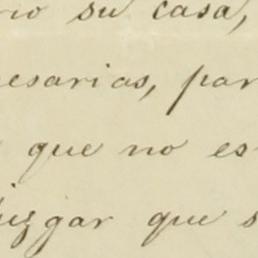 su casa,
esarias, par
que no es
juzgar que s